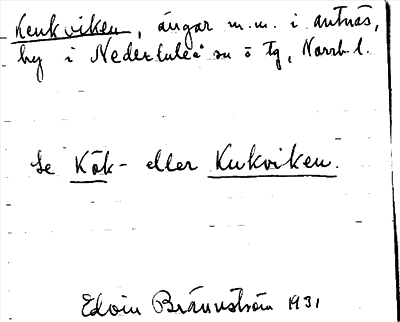 Keukviken, ängar m.m. i Antnäs,
by i Nederluleå sn ö tg, Norrb. l.
Se Kök- eller Kukviken.
Edvin Brännström 1931